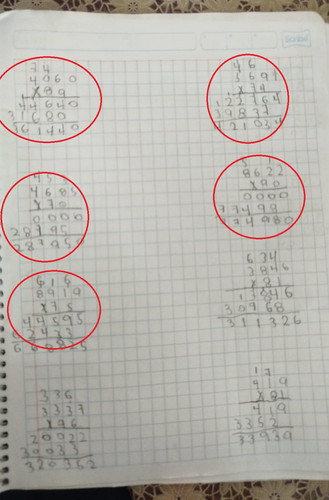 74
4960
x89
44640
31680
361440
46
5691
x74
122764
39837
421034
4685
x70
0000
28795
287950
5 1
8622
x90
0000
77498
774980
616
8919
x75
44595
62433
634
3846
x81
30768
311326
336
3337
x96
20022
30033
320352
17
419
x81
419
3352
33939